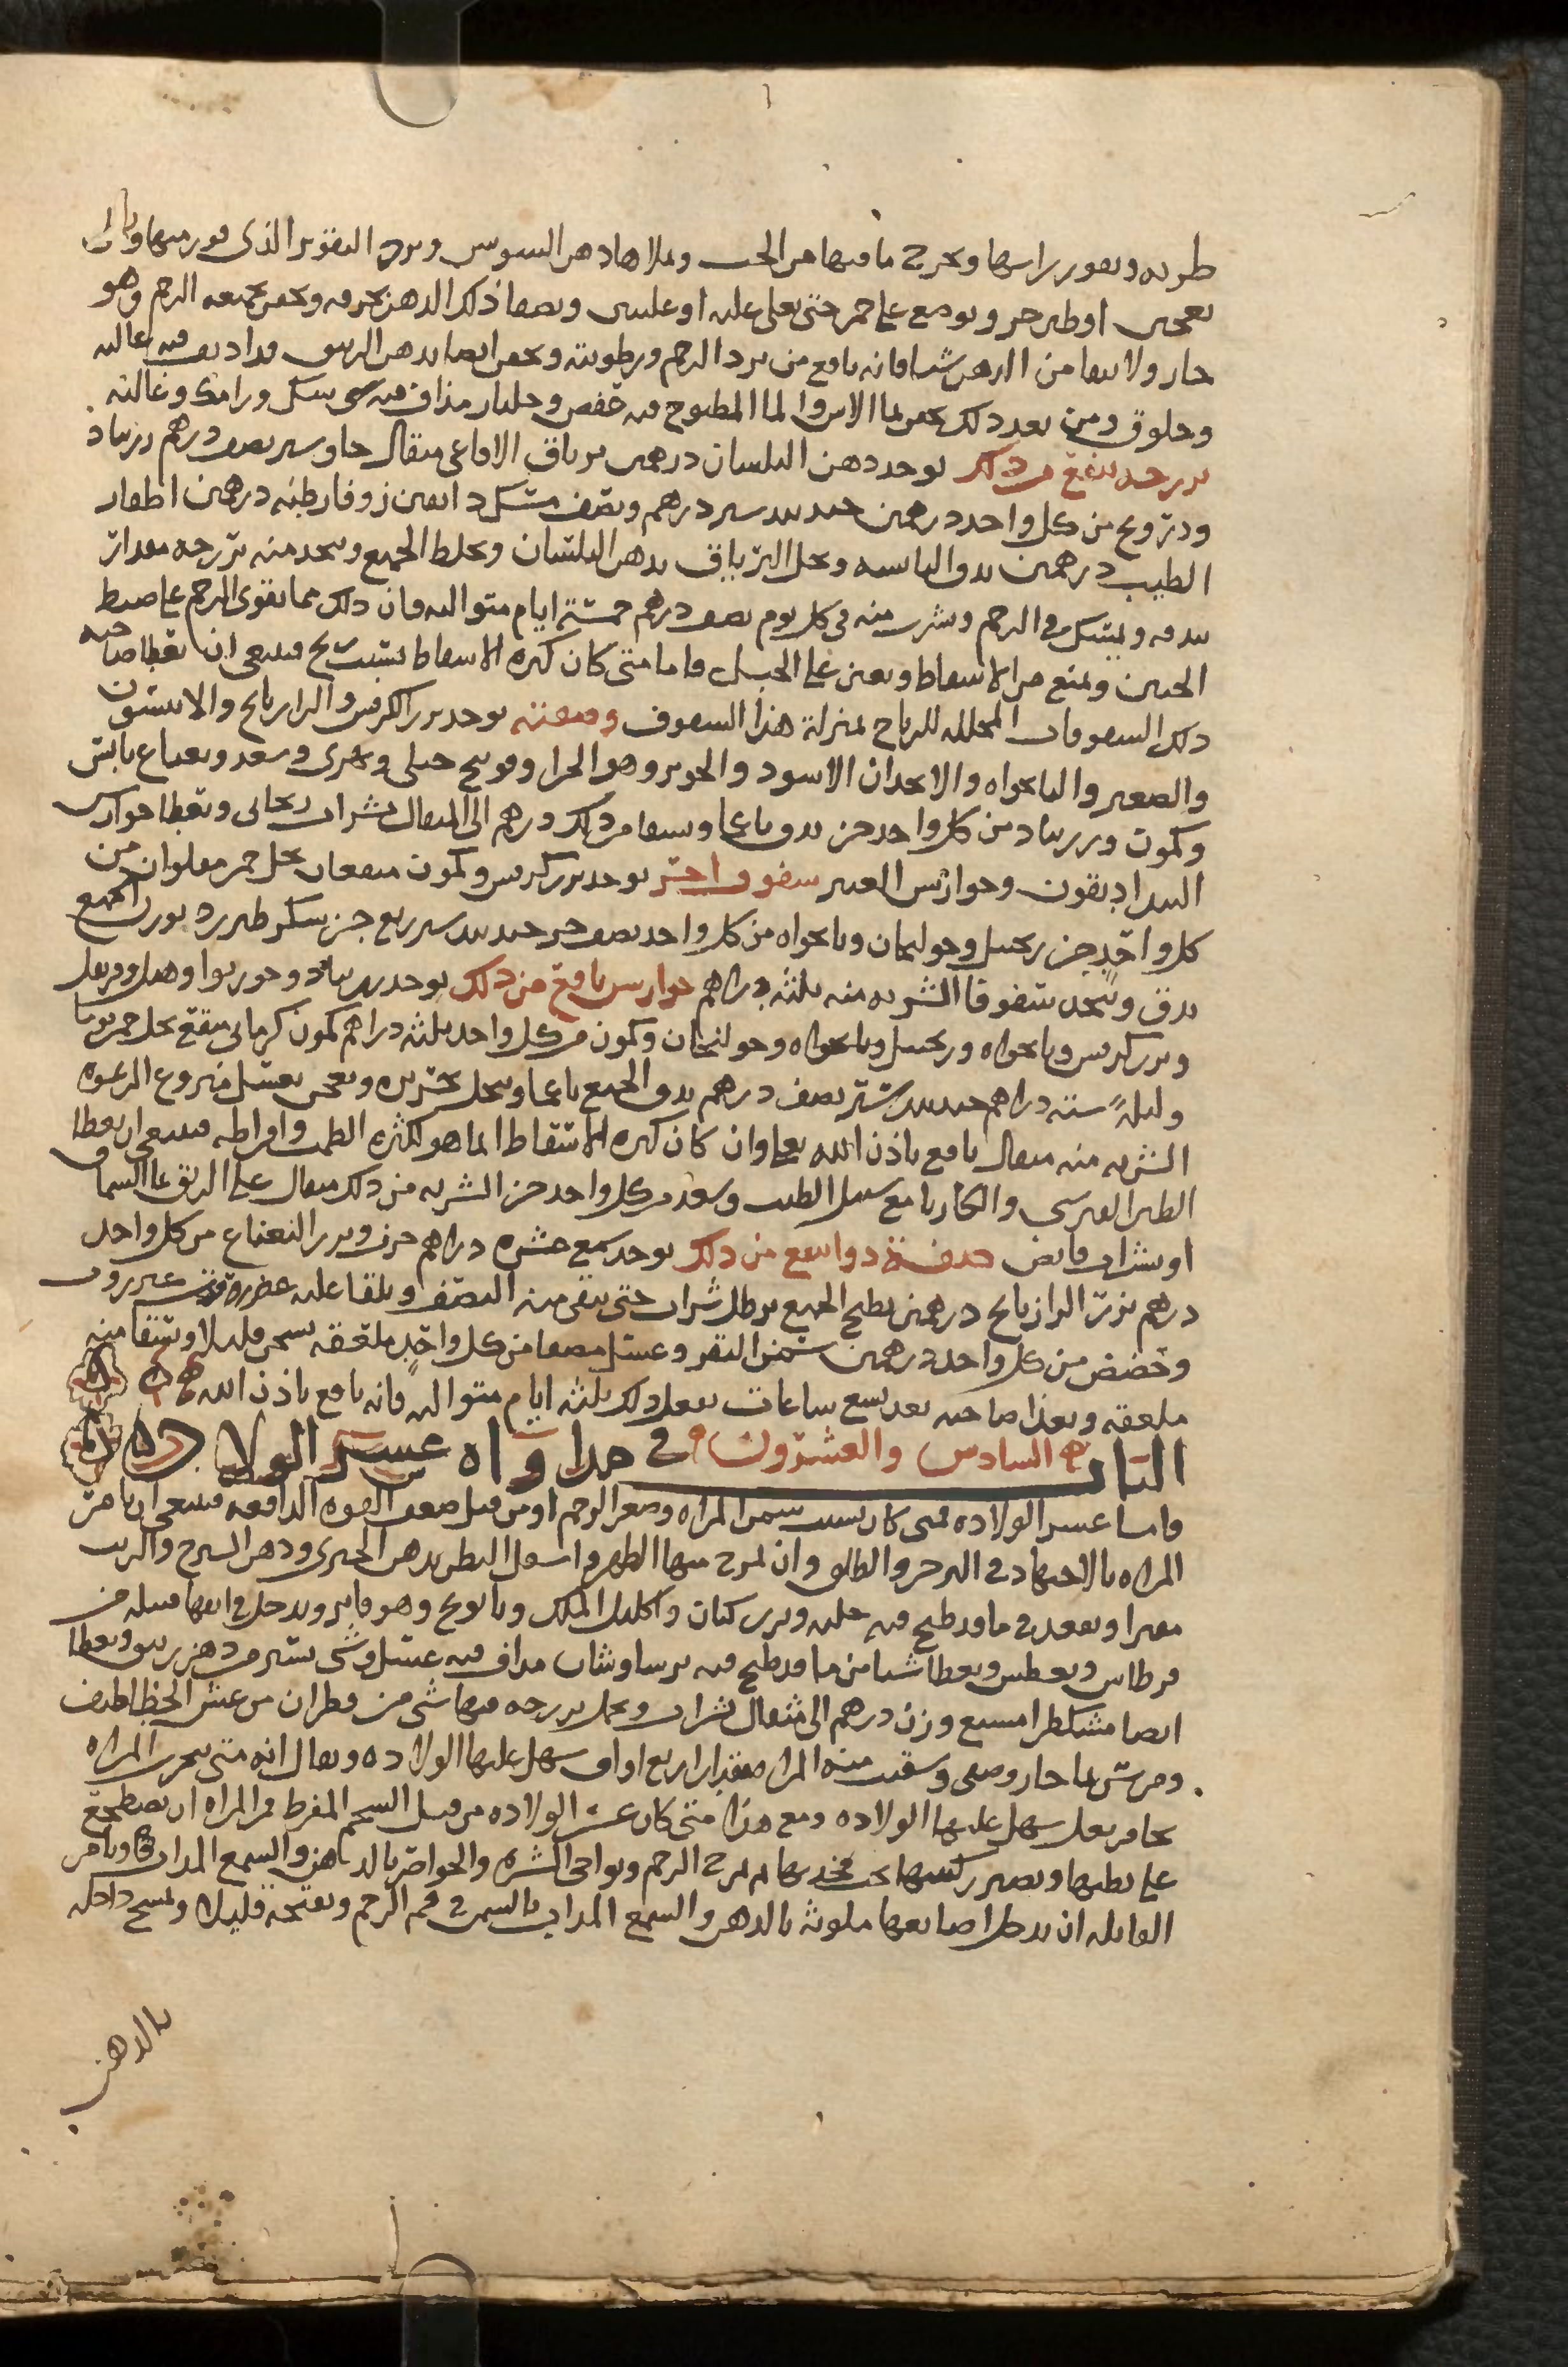 طريه ويقور راسها ويخرج ما فيها من الحب ويملاها دهن السوسن ويرد التقوير الذى قور منها
بعجين او طين حر ويوضع على جمر حتى يغلى غليه او غليتين ويصفا ذلك الدهن بخرقه ويحقن بجمعه الرحم وهو
حار ولا يبقا من الدهن شيا فانه نافع من برد الرحم ورطوبته ويحقن ايضا بدهن الزنبق قد اديف فيه غاليه
وخلوق ومن بعد ذلك يحقن بما الاس والما المطبوخ فيه عفص وجلنار مذاف فيه سك ورامك وغاليه
فرزجه تنفع من ذلك يوخد دهن البلسان درهمين ترياق الافاعى مثقال جاوشير نصف درهم زرنباد
ودرونج من كل واحد درهمين جندبيدستر درهم ونصف مسك دانقين زوفا رطبه درهمين اظفار
الطيب درهمين يدق اليابسه ويحل الترياق بدهن البلسان ويخلط الجميع ويتخد منه فرزجه
ويمسك فى الرحم ويشرب منه فى كل يوم نصف درهم خمسة ايام متواليه فان ذلك مما يقوى الرحم على ضبط
الجنين ويمنع من الاسقاط ويعين على الحبل فاما متى كان كثره الاسقاط بسبب ريح فينبغى ان يعطا صاحبه
ذلك السفوفات المحلله للرياح بمنزلة هذا السفوف وصفته يوخد بزر الكرفس والرازيانج والانيسون
والصعتر والنانخواه والانجدان الاسود والحزا وفوتنج جبلى ونهرى وسعد ونعناع يابس
وكمون وزرنباد من كل واحد جز يدق ناعما ويسقا من ذلك درهم الى المثقال بشراب ريحانى ويعطا جوارش
البنداديقون وجوارش العنبر سفوف اخر يوخد بزر كرفس وكمون منقعان بخل خمر مقلوان من
كل واحد جز زنجبيل وخولنجان ونانخواه من كل واحد نصف جز جندبيدستر ربع جز سكر طبرزد بوزن الجميع
يدق ويتخد سفوفا الشربه منه ثلثه دراهم جوارش نافع من ذلك يوخد زرنباد وجوزبوا وهيل وقرنفل
وبزر كرفس ونانخواه وزنجبيل ونانخواه وخولنجان وكمون من كل واحد ثلثه دراهم كمون كرمانى منقع بخل خمر يوما
وليله سته دراهم جندبيدستر نصف درهم يدق الجميع ناعما وينخل بحريره ويعجن بعسل منزوع الرغوه
الشربه منه مثقال نافع باذن الله تعالى وان كان كثره الاسقاط انما هو لكثره الطمث وافراطه فينبغى ان يعطا
الطين القبرسى والكاربا مع سنبل الطيب وسعد من كل واحد جز الشربه من ذلك مثقال على الريق بما السماق
او بشراب قابض صفة دوا ينفع من ذلك يوخد شمع عشره دراهم حرف وبزر النعناع من كل واحد
درهم بزر الرازيانج درهمين يطبخ الجميع برطل شراب حتى يبقى منه النصف ويلقا عليه عنزروت
وحضض من كل واحد درهمين سمن البقر وعسل مصفا من كل واحد ملعقه يسخن قليلا ويسقا منه
ملعقه ويغذا صاحبه بعد تسع ساعات يفعل ذلك ثلثه ايام متواليه فانه نافع باذن الله
الباب السادس والعشرون فى مداواه عسر الولاده
فاما عسر الولاده فمتى كان بسبب سمن المراه وصغر الرحم او من قبل ضعف القوه الدافعه فينبغى ان تامر
المراه بالاجتهاد فى الزحر والطلق وان تمرخ منها الظهر واسفل البطن بدهن الخيرى ودهن الشيرج والزيت
مفترا وتقعد فى ما قد طبخ فيه حلبه وبزر كتان واكليل الملك وبابونج وهو فاتر ويدخل فى انفها فتيله من
قرطاس وتعطس وتعطا شيا من ما قد طبخ فيه برساوشان مداف فيه عسل وشى يسير من دهن زنبق وتعطا
ايضا مشكطرامسيع وزن درهم الى مثقال بشراب وتحمل فرزجه فيها شى من قطران من عش الخطاطيف
ومرس بما حار وصفى وسقيت منه المراه مقدار اربع اواق سهل عليها الولاده ويقال انه متى بخرت المراه
بحافر بغل سهل عليها الولاده ومع هذا متى كان عسر الولاده من قبل الشحم المفرط فمر المراه ان تضطجع
على بطنها وتصير ركبتيها تحت فخديها ثم تمرخ الرحم ونواحى السره والخواصر بالدهن والشمع المداب وتامر
القابله ان تدخل اصابعها ملوثه بالدهن والشمع المداب بالسمن فى فم الرحم وتفتحه قليلا وتمسح داخله
بالدهن